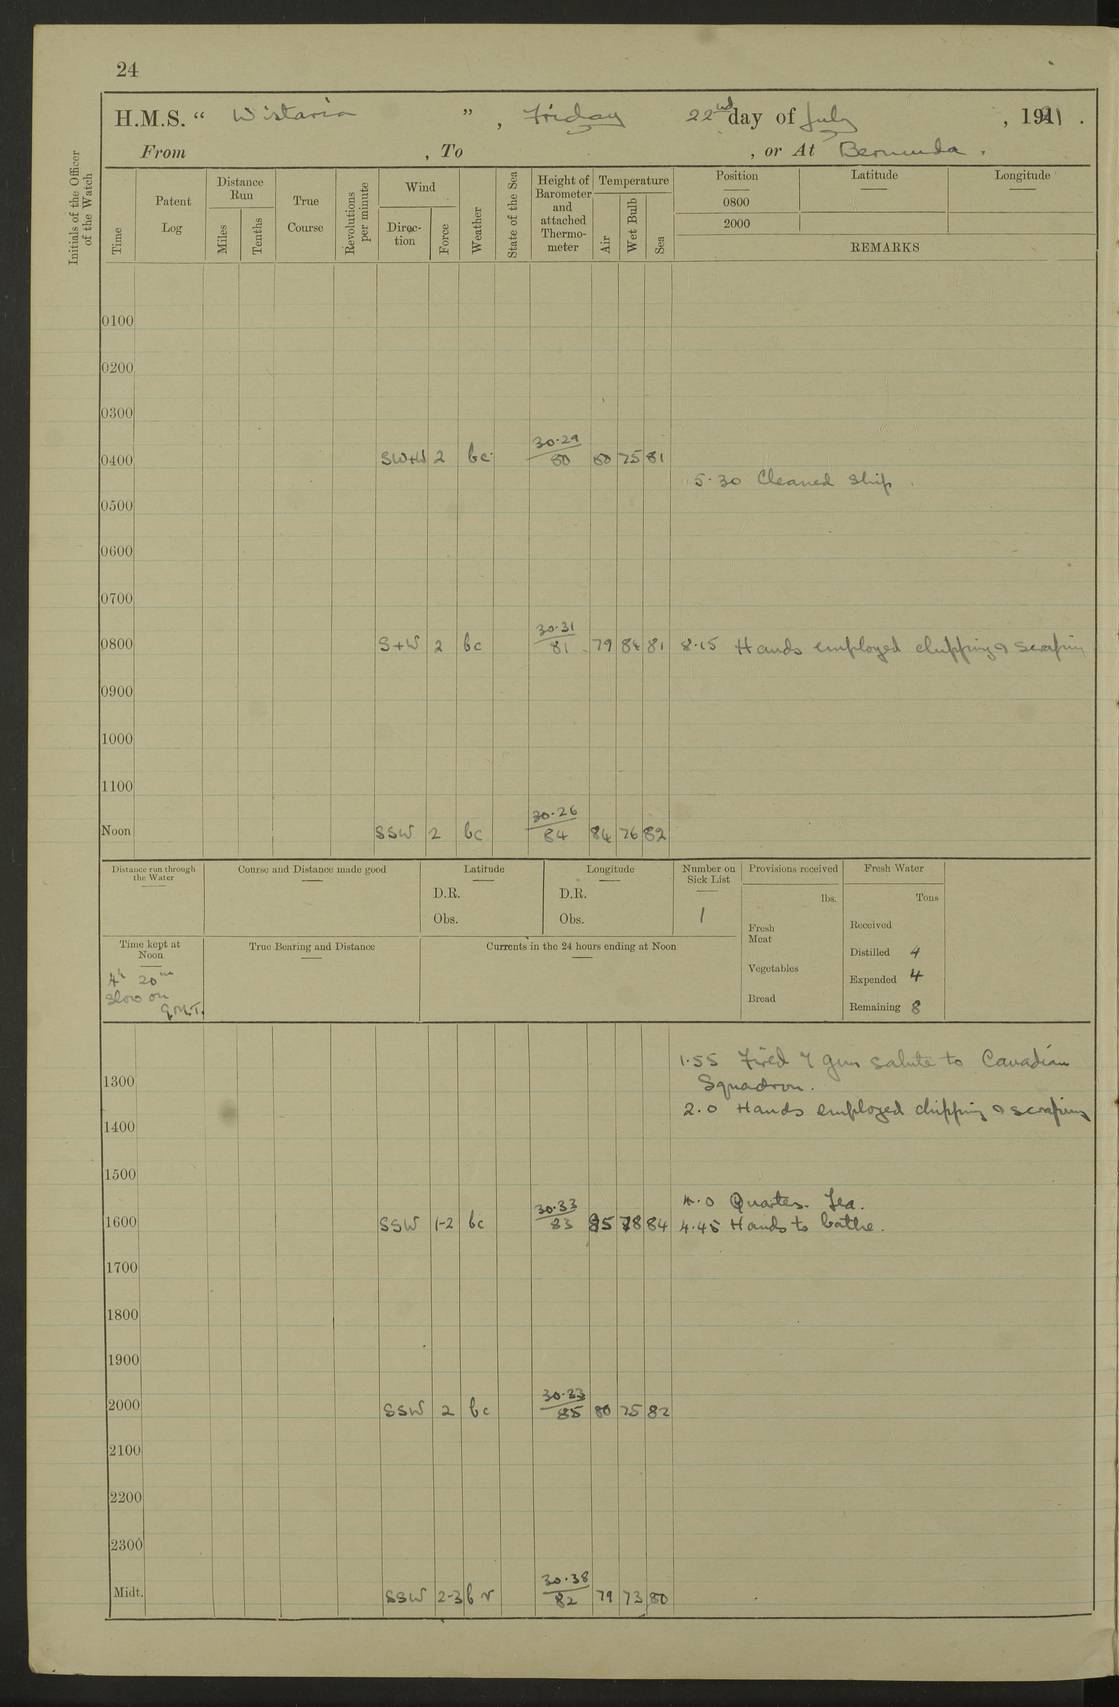 24
H.M.S. “ Wistaria ” , Friday 22nd day of July , 1921 .
From , To , or At Bermuda .
Initials of the Officer of the Watch
Time
Patent Log
Distance Run
Miles
Tenths
True Course
Revolutions per minute
Wind
Direc-tion
Force
Weather
State of the Sea
Height of Barometer and attached Thermo-meter
Temperature
Air
Wet Bulb
Sea
Position Latitude Longitude
0800
2000
REMARKS
0100
0200
0300
0400 SW+W 2 bc 30.29 80 80 75 81
5.30 Cleaned ship.
0500
0600
0700
0800 S+W 2 bc 30.31 81 79 84 81 8.15 Hands employed chipping & scraping
0900
1000
1100
Noon SSW 2 bc 30.26 84 84 76 82
Distance run through the Water
Course and Distance made good
Latitude
D.R.
Obs.
Longitude
D.R.
Obs.
Number on Sick List
1
Provisions received
lbs.
Fresh Meat
Vegetables
Bread
Fresh Water
Tons
Received
Distilled 4
Expended 4
Remaining 8
Time kept at Noon
4h 20m
slow on
G.M.T.
True Bearing and Distance
Currents in the 24 hours ending at Noon
1.55 Fired 7 gun salute to Canadian
Squadron.
1300
2.0 Hands employed chipping & scraping
1400
1500
4.0 Quarters. Tea.
1600 SSW 1-2 bc 30.33 83 85 78 84 4.45 Hands to bathe.
1700
1800
1900
2000 SSW 2 bc 30.33 85 80 75 82
2100
2200
2300
Midt. SSW 2-3 b v 30.38 82 79 73 80